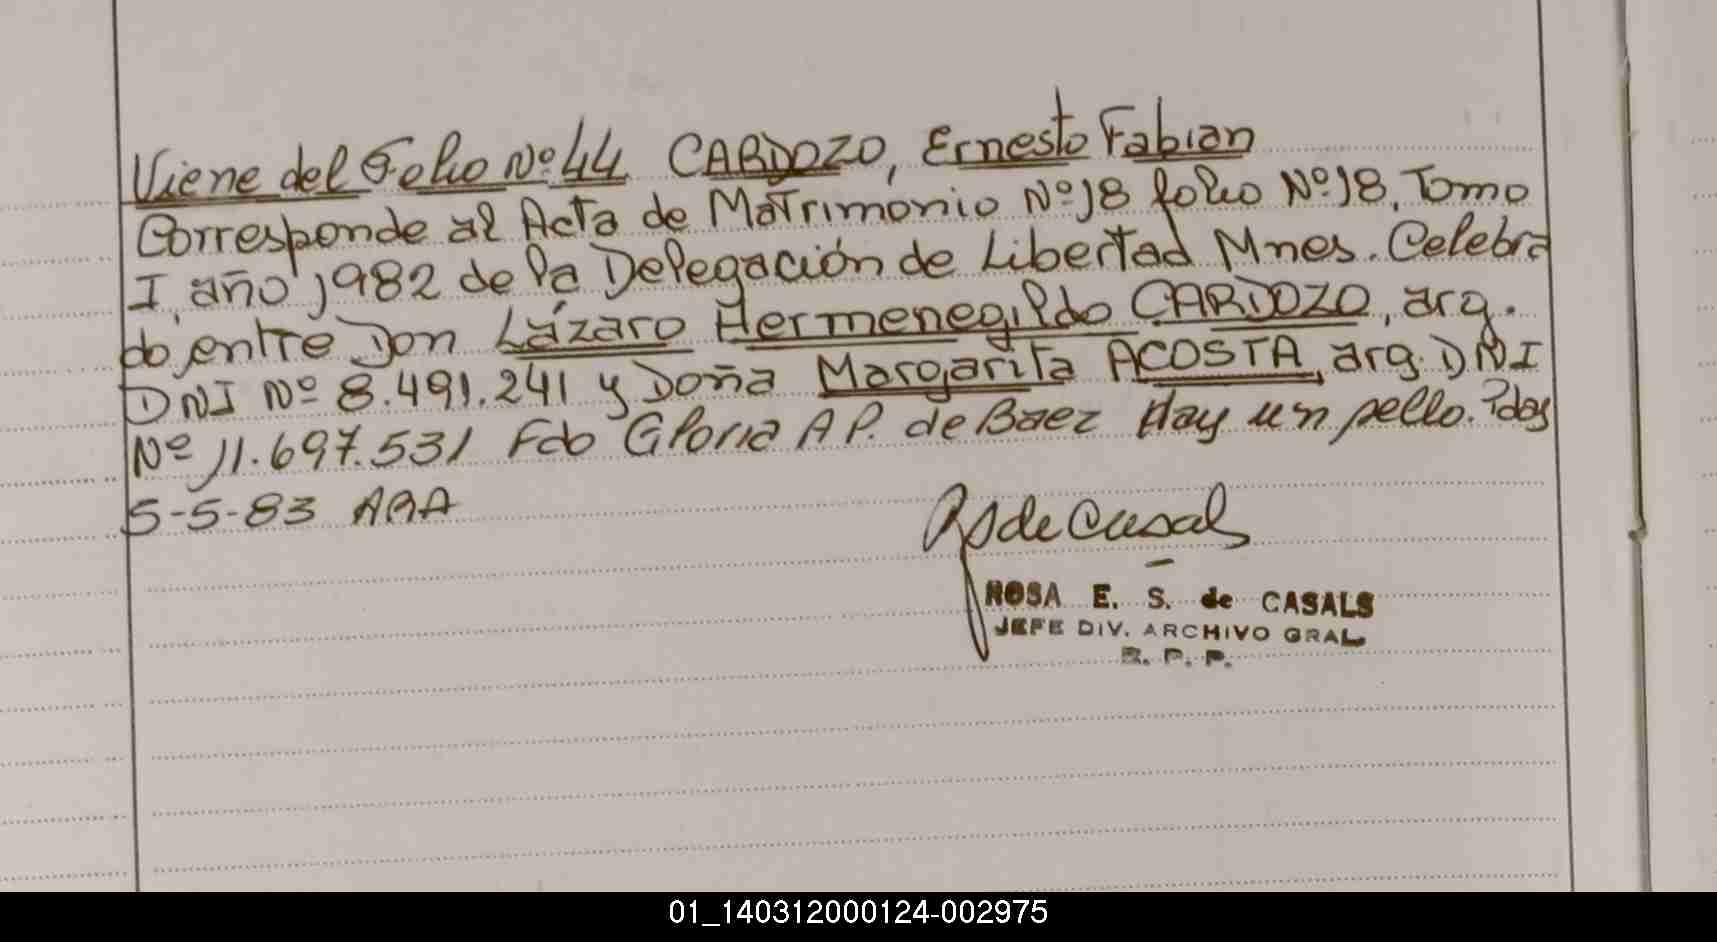 Viene del Folio Nº 44 CARDOZO, Ernesto Fabian
Corresponde al Acta de Matrimonio Nº 18 folio Nº 18, Tomo
I, año 1982 de la Delegación de Libertad Mnes. Celebra
do entre Don Lázaro Hermenegildo CARDOZO, arg.
DNI Nº 8.491.241 y Doña Margarita ACOSTA, arg. DNI
Nº 11.697.531 Fdo Gloria A P. de Baez Hay un sello. Pdas
5-5-83 ARA
RSde Casals
ROSA E. S. de CASALS
JEFE DIV. ARCHIVO GRAL.
R. P. P.
01_140312000124-002975